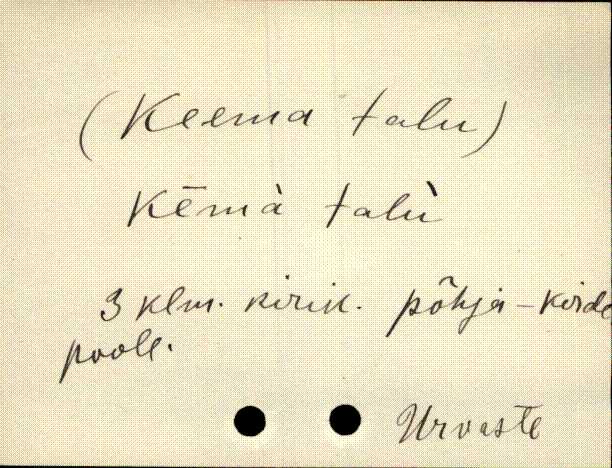 (Keema talu)
Kēmà talù
3 klm. kirik. põhja-kirde
poole.
Urvaste